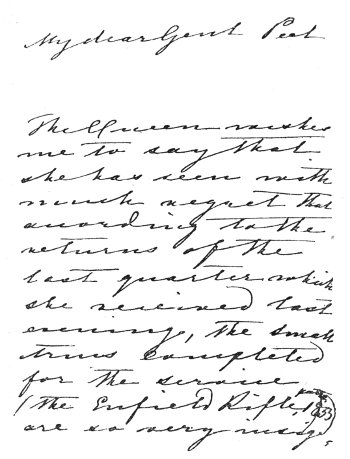 My dear Genl Peel
The Queen wishes
me to say that
she has seen with
much regret that
according to the
returns of the
last quarter which
she received last
evening, the small
arms completed
for the service
(the Enfield Rifle 1853)
are so very insig-